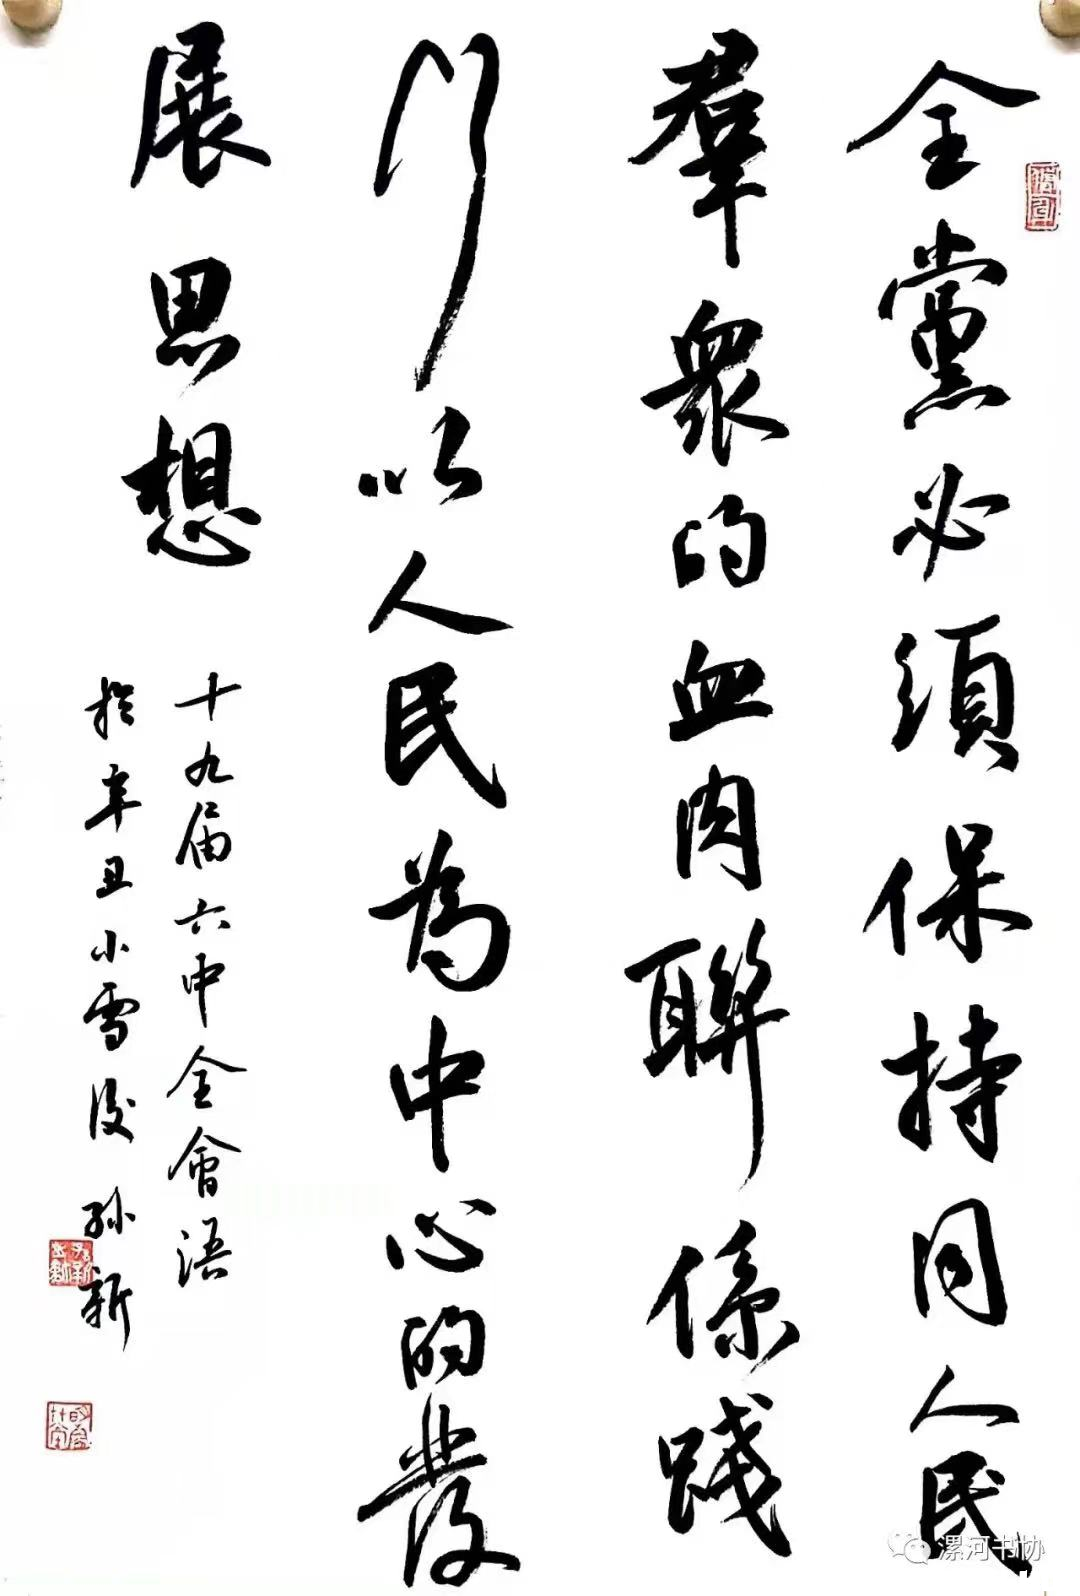 全黨必須保持同人民
羣衆的血肉聯係踐
行以人民為中心的發
展思想
十九届六中全會語
於辛丑小雪後 孫新
漯河书协